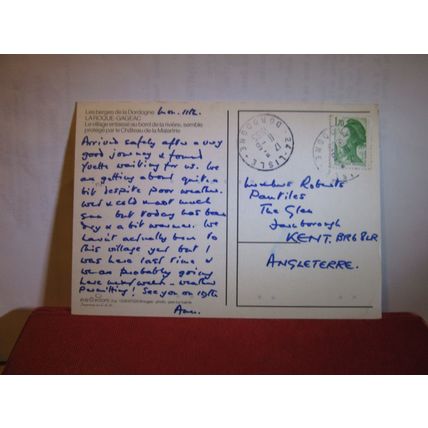 Les berges de la Dordogne
LA ROQUE-GAGEAC
Le village entassé au bord de la rivière, semble
protégé par le Château de la Malartrie
Mon. 11th.
Arrived safely after a very
good journey & found
Yvette waiting for us. We
are getting about quite a
bit despite poor weather.
Wet & cold most much
sun but today has been
dry & a bit warmer. We
haven't actually been to
this village yet but I
was here last time &
we are probably going
here next week - weather
permitting! See you on
Ann.
24 - L'ISLE
DORDOGNE
1,70
Roberts
Pantiles
The Glen
Farnborough
KENT. BR6 8LR
ANGLETERRE.